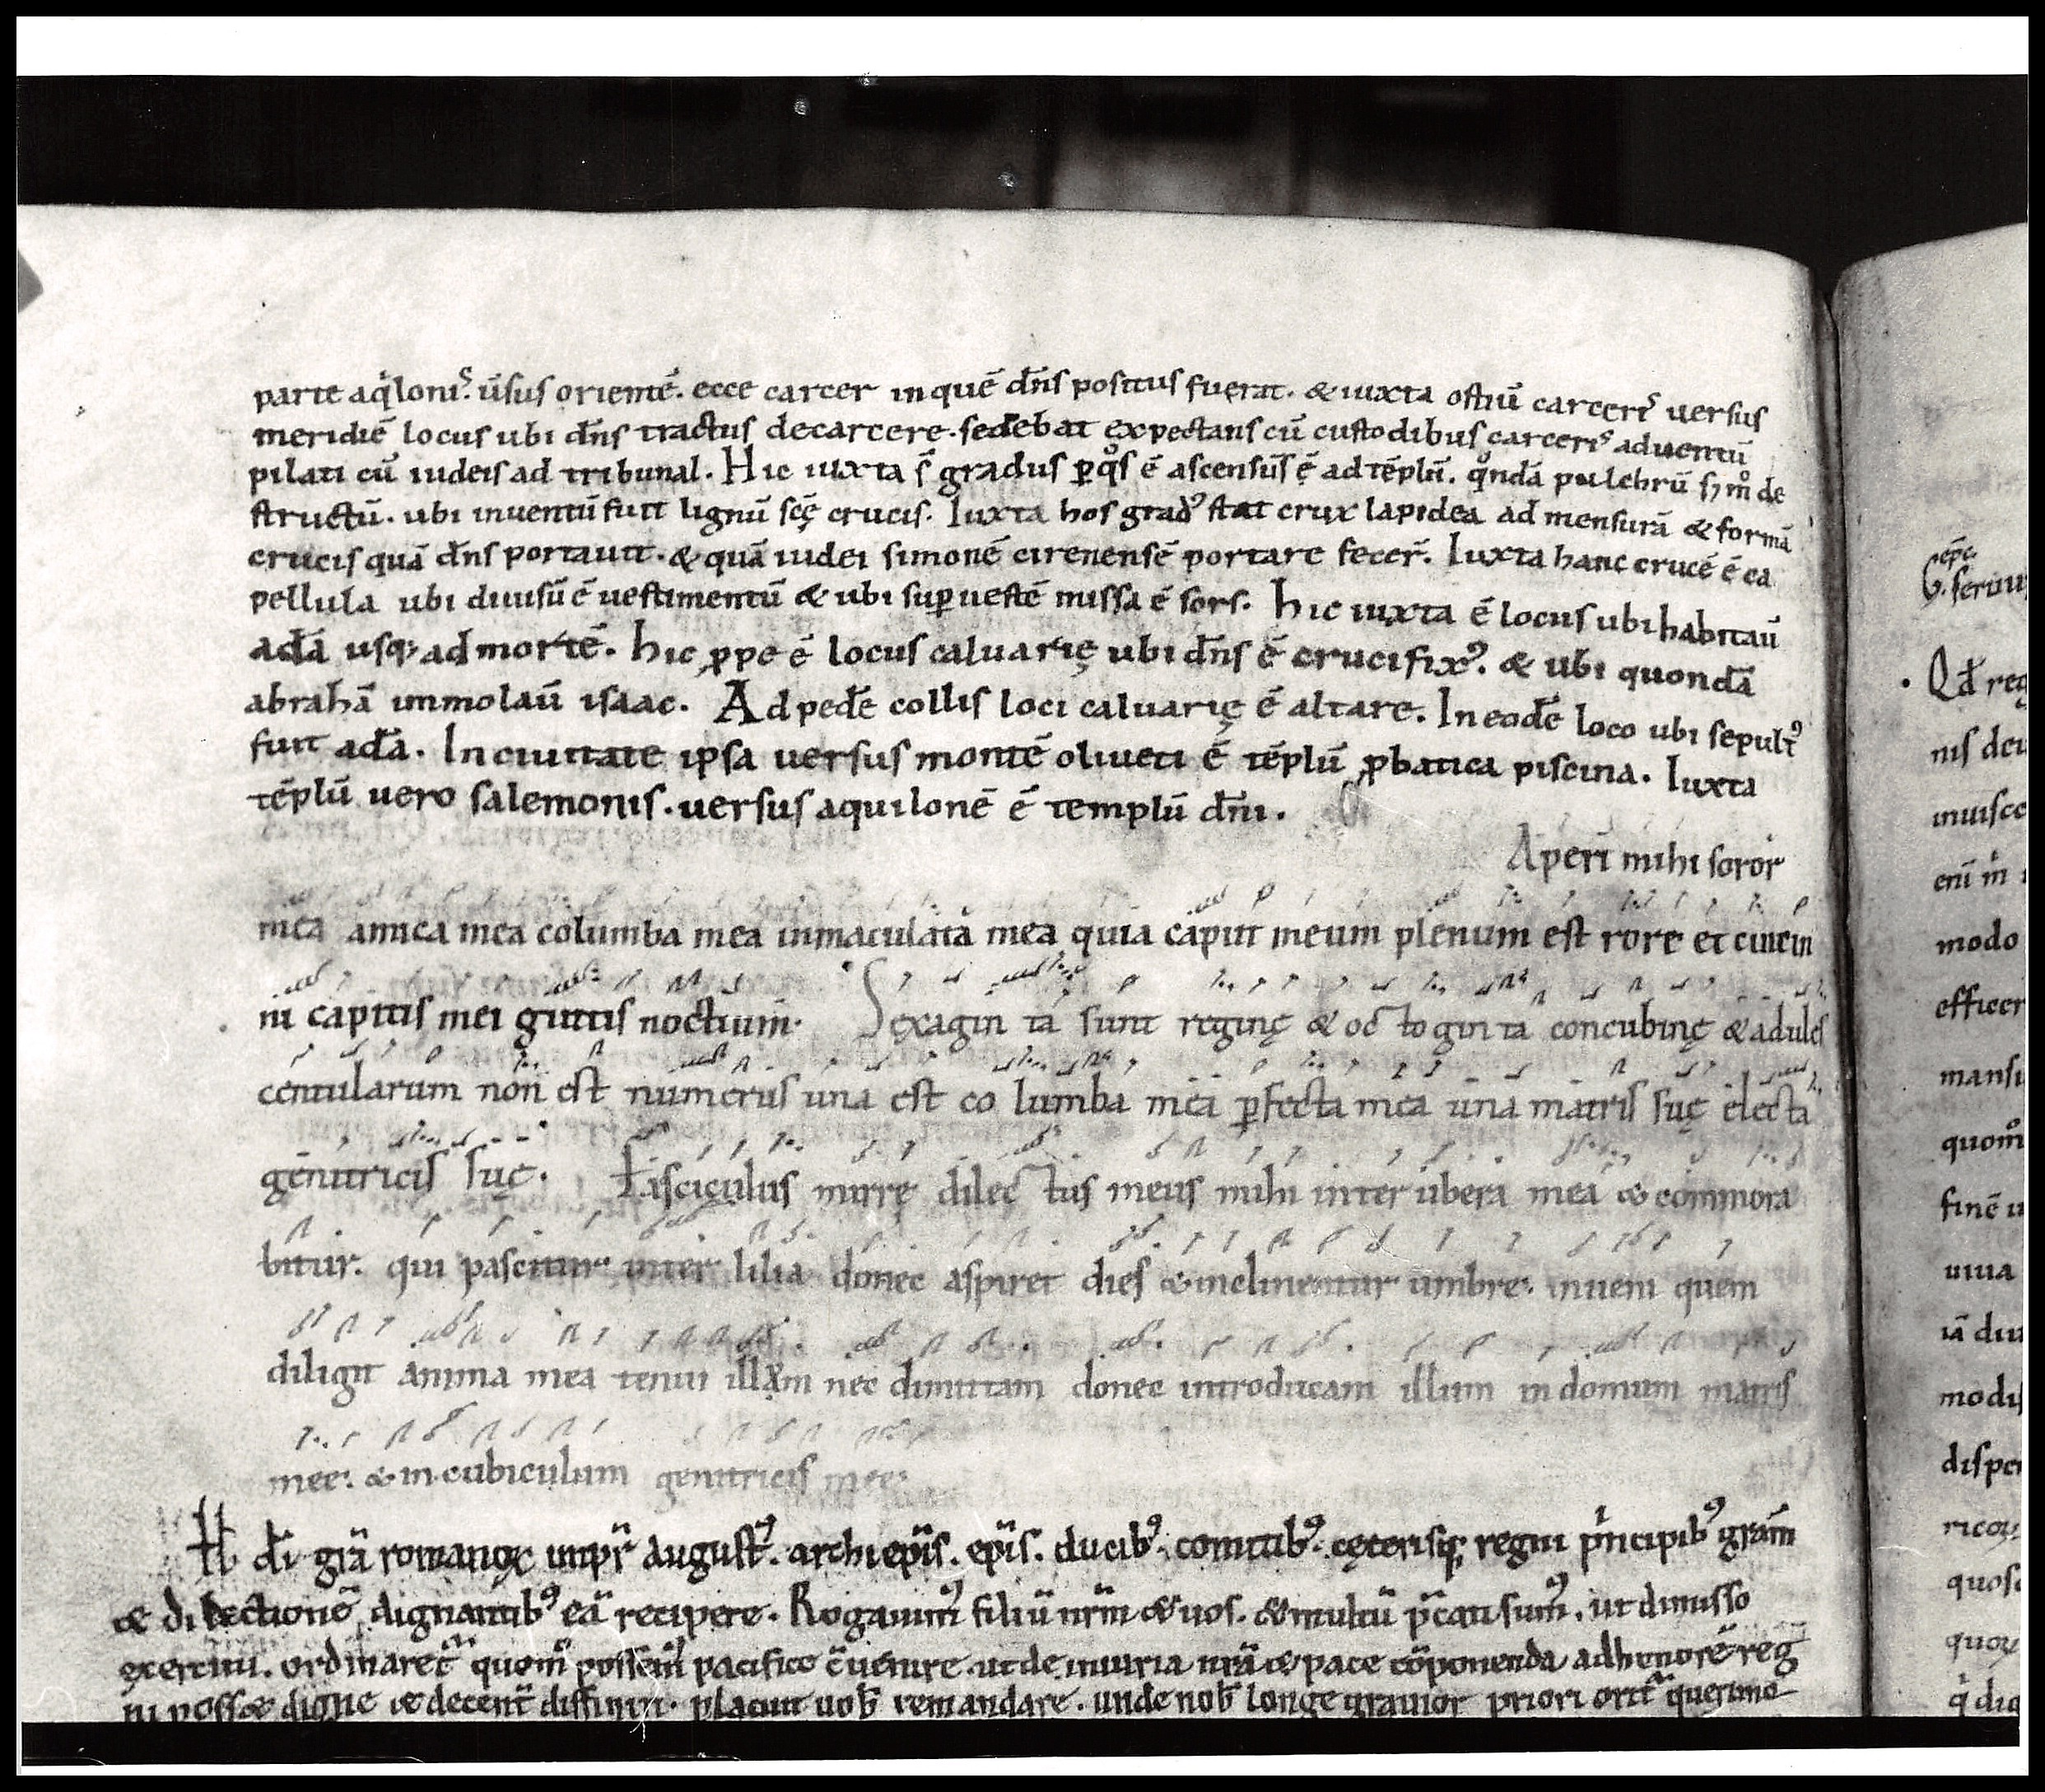 parte aq̇lonis. ūsus orientē. ecce carcer in quē dn̄s positus fuerat. & iuxta ostiū carceris versus
meridiē locus ubi dn̄s tractus de carcere. sedebat expectans cū custodibus carceris adventū
pilati cū iudeis ad tribunal. Hic iuxta s̄ gradus ꝑ qͦs ē ascensus ē ad tēplū. qͦndā pulchrū de
structū. ubi inventū fuit lignū scę̄ crucis. Iuxta hos gradꝰ stat crux lapidea ad mensurā & formā
crucis quā dn̄s portavit. & quā iudei simonē cirenensē portare fecer̄. Iuxta hanc crucē ē ca
pellula ubi divisū ē vestimentū & ubi suꝑ vestē missa ē sors. hic iuxta ē locus ubi habitaū
adā usq; ad mortē. hic ꝓpe ē locus calvarię ubi dn̄s ē crucifixꝰ. & ubi quondā
abrahā immolaū isaac. Ad pedē collis loci calvarię ē altare. In eodē loco ubi sepultꝰ
fuit adā. In civitate ipsa versus montē oliveti ē tēplū ꝓbatica piscina. Iuxta
tēplū vero salemonis. versus aquilonē ē templū dn̄i.
Aperi mihi soror
mea amica mea columba mea inmaculata mea quia caput meum plenum est rore et cincin
ni capitis mei guttis noctium.
Sexagin ta sunt reginę & oc to gin ta concubinę & adules
centularum non est numerus una est co lumba mea ꝑfecta mea una matris suę electa
genitricis suę. Fasciculus mirrę dilec tus meus mihi inter ubera mea & commora
bitur. qui pascitur inter lilia donec aspiret dies & inclinentur umbre. inveni quem
diligit anima mea tenui illum nec dimittam donec introducam illum in domum matris
mee. & in cubiculum genitricis mee.
H dī gr̄a romanoꝝ impr̄ augustꝰ. archiep̄is. ep̄is. ducibꝰ. comitibꝰ. cęterisq; regni pͥncipibꝰ grām
& dilectionē dignantibꝰ eā recipere. Rogavimꝰ filiū nr̄m & vos. & multū p̄cati sumꝰ. ut dimisso
exercitu. ordinaret quom̄ possemꝰ pacifice c̄venire ut de iniuria nr̄a & pace cōponenda ad honorē reg
ni posset digne & decent̄ diffiniri. placuit vob̄ remandare. unde nob̄ longe gravior priori orit̄ querimo
ep̄c
G. servu
Qd̄ reg
nis dei
inuisce
enī m̄
modo
efficer
mansi
quom̄
finē u
viva
iā diu
modis
disper
quos